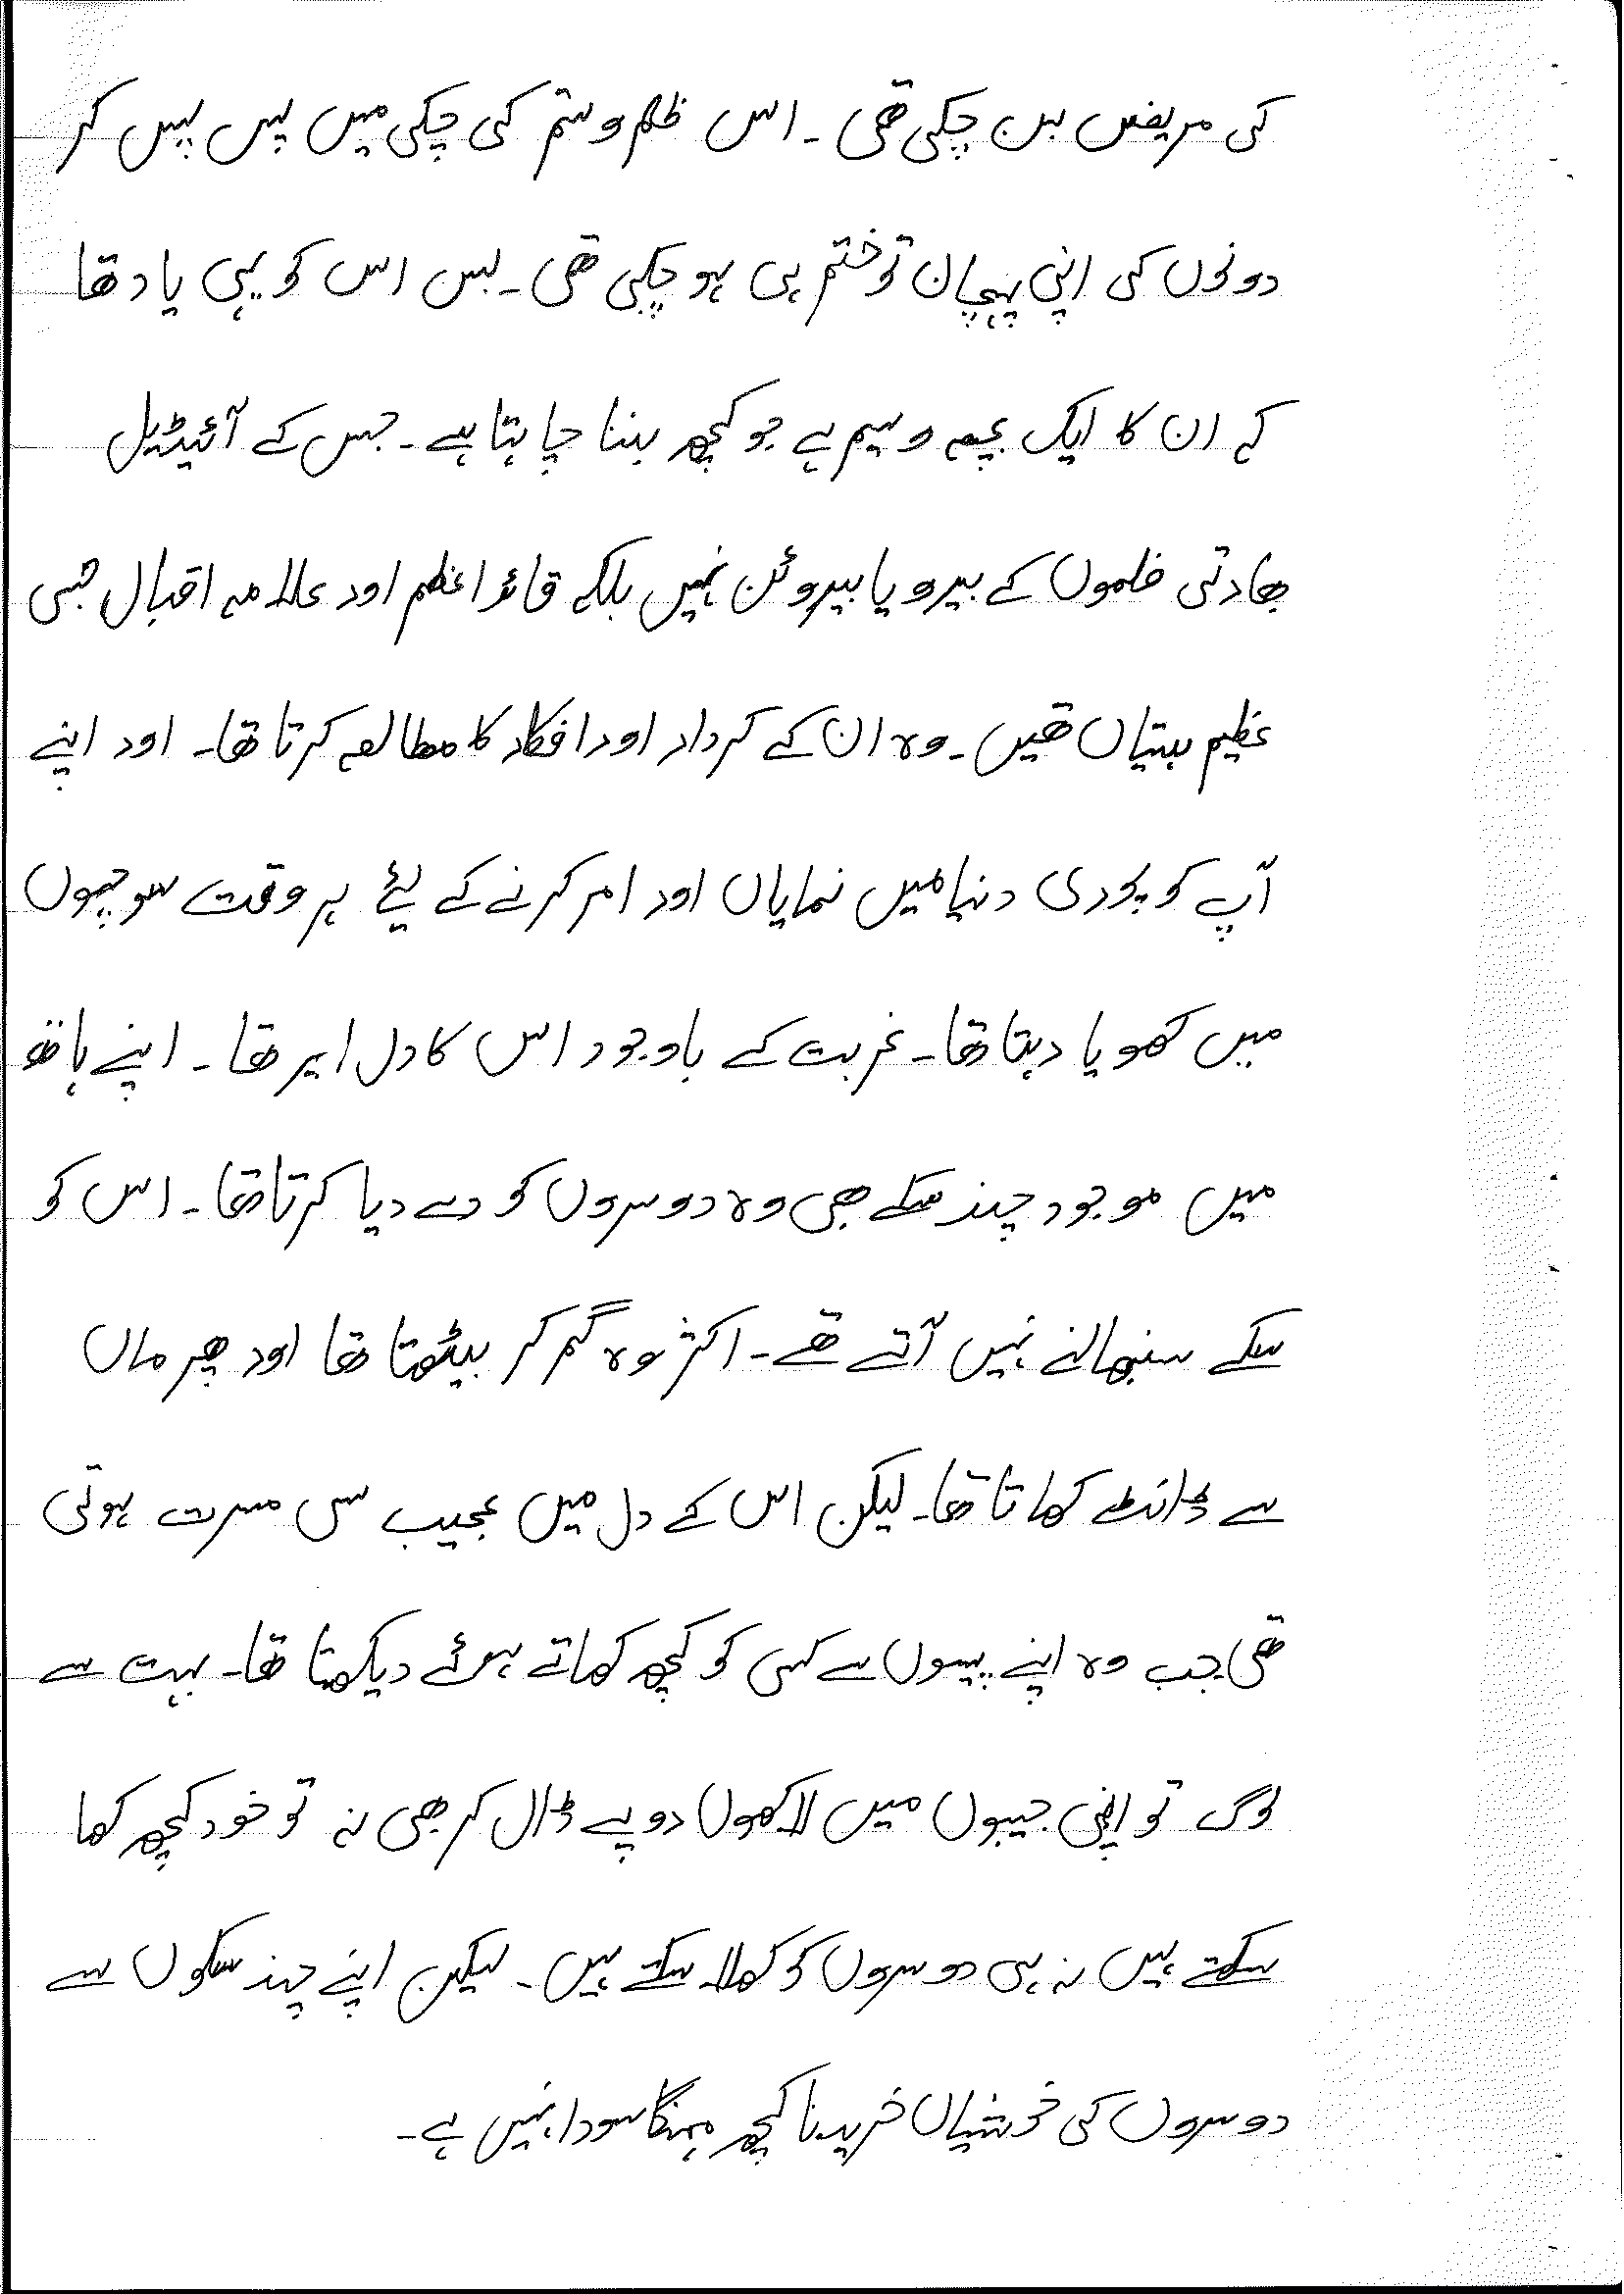 کی مریض بن چکی تھی ۔ اس ظلم و ستم کی چکی میں پس پس کر
دونوں کی اپنی پہچان تو ختم ہی ہو چکی تھی ۔ بس اس کو یہی یاد تھا
کہ ان کا ایک بچہ وسیم ہے جو کچھ بننا چاہتا ہے ۔ جس کے آئیڈیل
بھارتی فلموں کے ہیرو یا ہیروئن نہیں بلکہ قائد اعظم اور علامہ اقبال جیسی
عظیم ہستیاں تھیں ۔ وہ ان کے کردار اور افکار کا مطالعہ کرتا تھا ۔ اور اپنے
آپ کو پوری دنیا میں نمایاں اور امر کرنے کے لیئے ہر وقت سوچوں
میں کھویا رہتا تھا ۔ غربت کے باوجود اس کا دل امیر تھا ۔ اپنے ہاتھ
میں موجود چند سکے بھی وہ دوسروں کو دے دیا کرتا تھا ۔ اس کو
سکے سنبھالنے نہیں آتے تھے ۔ اکثر وہ گم کر بیٹھتا تھا اور پھر ماں
سے ڈانٹ کھاتا تھا ۔ لیکن اس کے دل میں عجیب سی مسرت ہوتی
تھی جب وہ اپنے پیسوں سے کسی کو کچھ کھاتے ہوئے دیکھتا تھا ۔ بہت سے
لوگ تو اپنی جیبوں میں لاکھوں روپے ڈال کر بھی نہ تو خود کچھ کھا
سکتے ہیں نہ ہی دوسروں کو کھلا سکتے ہیں ۔ لیکن اپنے چند سکوں سے
دوسروں کی خوشیاں خریدنا کچھ مہنگا سودا نہیں ہے ۔